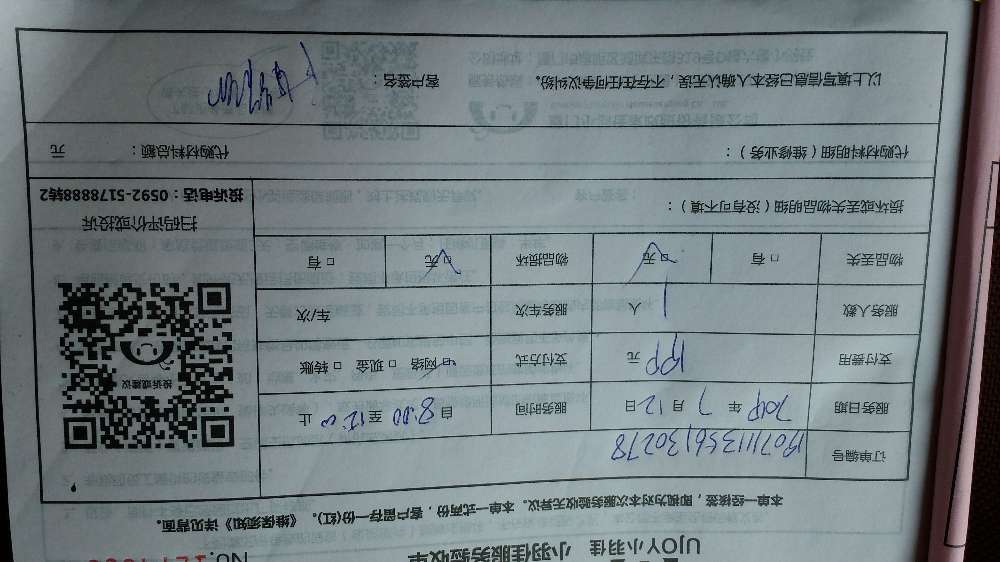 UJOY小羽佳 小羽佳服务验收单
No.
本单一经核签，即视为对本次服务验收无异议。本单一式两份，客户留存一份(红)。《维保须知》详见背面。
订单编号 1907111356130278
服务日期 2019 年 7 月 12 日 服务时间 自 8:00 至 12:00 止
支付费用 199 元 支付方式 ☑ 网络 □ 现金 □ 转账
服务人数 1 人 服务车次 车/次
物品丢失 □ 有 ☑ 无 物品损坏 ☑ 无 □ 有
损坏或丢失物品明细（没有可不填）：
投诉或建议
扫码评价或投诉
投诉电话：0592-5178888转2
代购材料明细（维修业务）： 代购材料总额： 元
以上填写信息已经本人确认无误，不存在任何争议纠纷。 客户签名：